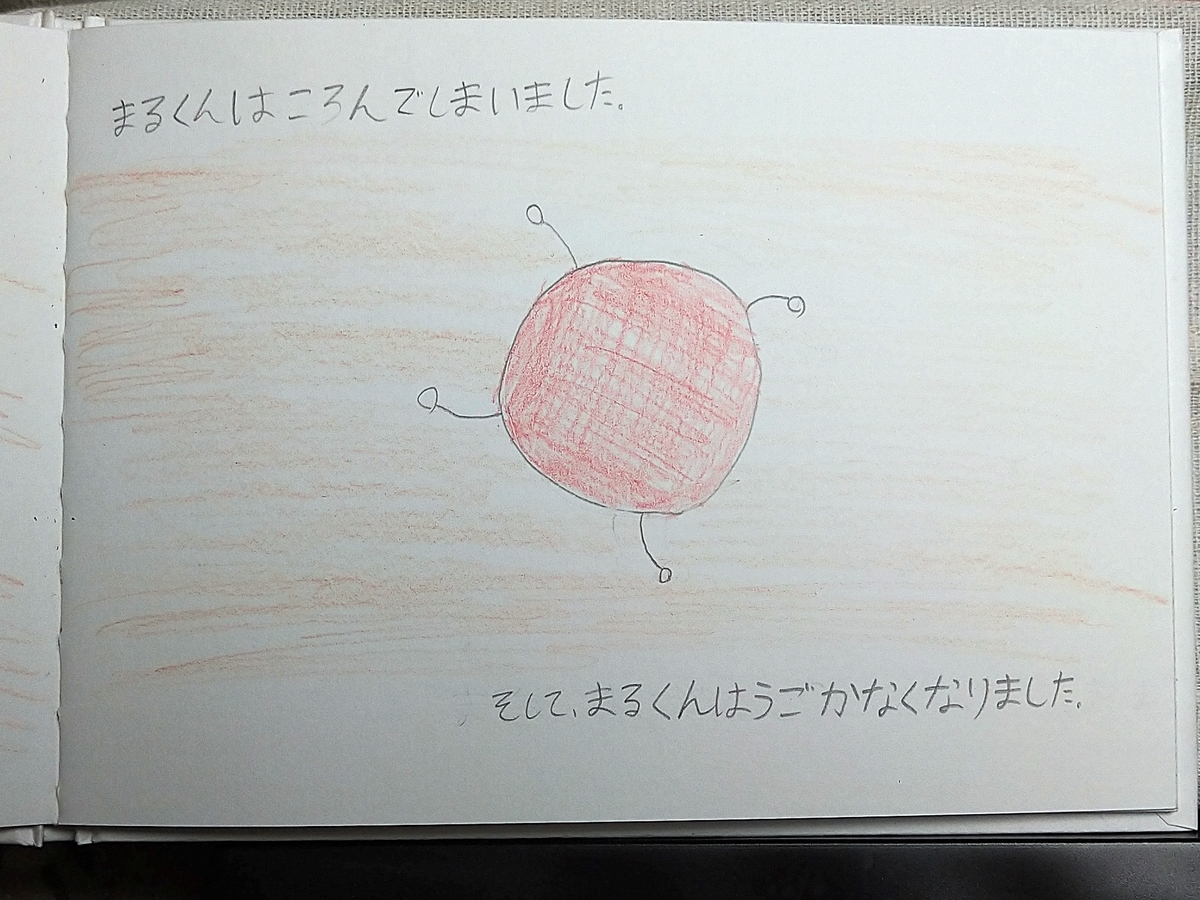 まるくんはころんでしまいました。
そして、まるくんはうごかなくなりました。